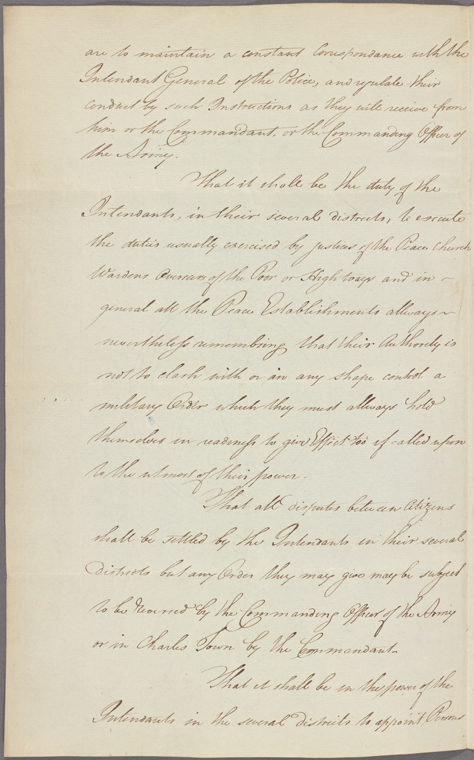 are to maintain a constant Correspondance with the
Intendant General of the Police, and regulate their
conduct by such Instructions as they will receive from
him or the Commandant, or the Commanding Officer of
the Army.
That it shall be the duty of the
Intendants, in their several districts, to execute
the duties usually exercised by justices of the Peace Church
Wardens Overseers of the Poor or Highways and in
general all the Peace Establishments allways
nevertheless remembring that their Authority is
not to clash with or in any shape control a
military Order which they must allways hold
themselves in readiness to give Effect to if called upon
to the utmost of their power.
That all disputes between Citizens
shall be settled by the Intendants in their several
districts but any Order they may give may be subject
to be reversed by the Commanding Officer of the Army
or in Charles Town by the Commandant
That it shall be in the power of the
Intendants in the several districts to appoint Persons